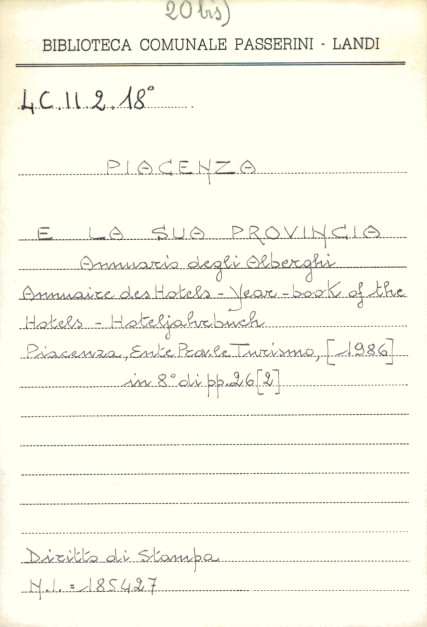 20 bis)
BIBLIOTECA COMUNALE PASSERINI - LANDI
4C.II.2.18°
PIACENZA
E LA SUA PROVINCIA
Annuario degli Alberghi
Annuaire des Hotels - Year-book of the
Hotels - Hoteljahrbuch
Piacenza, Ente Prov.le Turismo, [1986]
in 8° di pp. 26[2]
Diritto di Stampa
N.I. = 185427